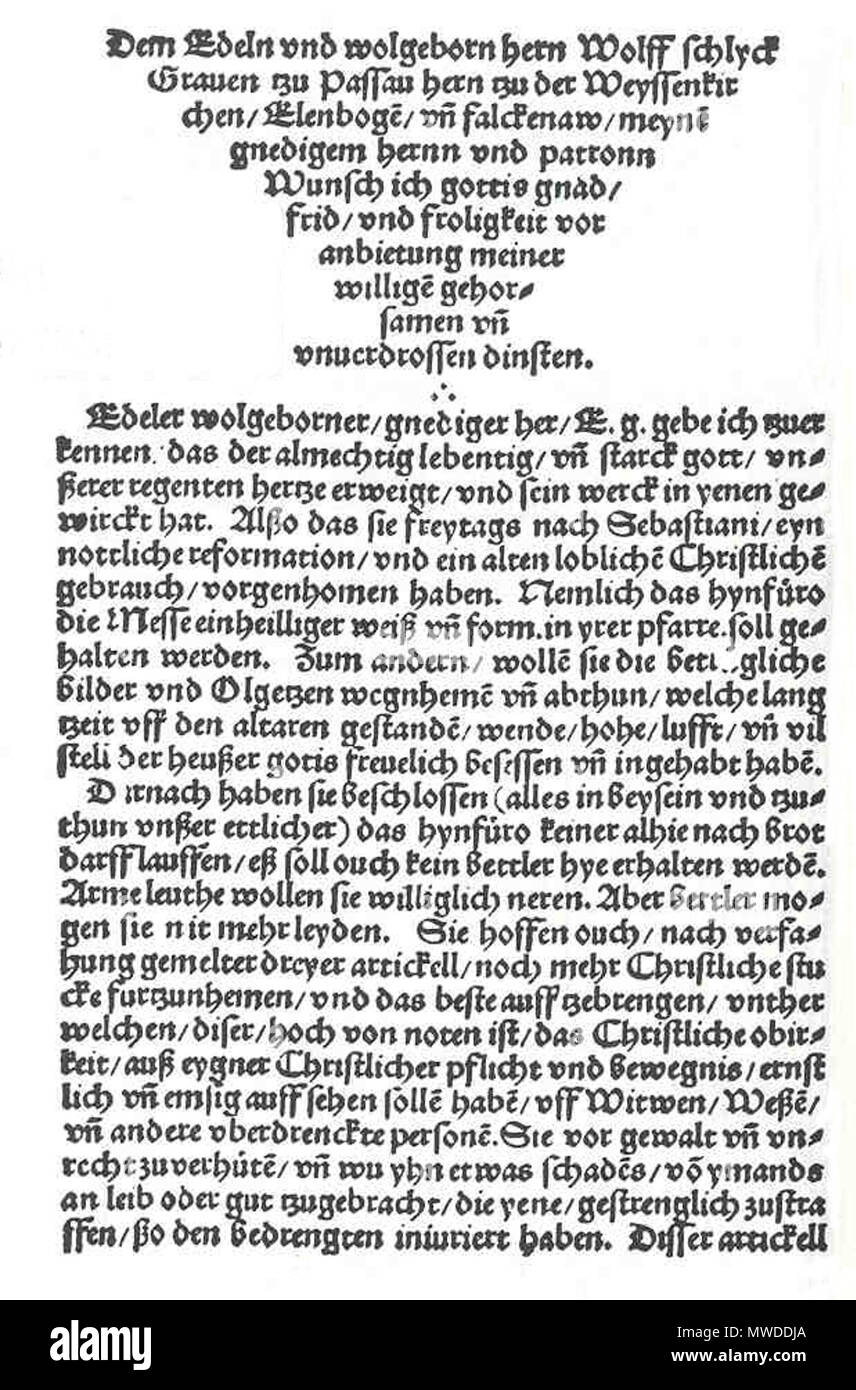 Dem Edeln vnd wolgeborn hern Wolff schlyck
Grauen tzu Passau hern tzu der Weyssenkir
chen/ Elenbogē/ vn̄ falckenaw/ meynē
gnedigem hernn vnd patronn
Wunsch ich gottis gnad/
frid/ vnd froligkeit vor
anbietung meiner
willigē gehor⸗
samen vn̄
vnuerdrossen dinsten.
Edeler wolgeborner/ gnediger her/ E. g. gebe ich tzuer
kennen. das der almechtig lebentig/ vn̄ starck gott/ vn⸗
ßerer regenten hertze erweigt/ vnd sein werck in yenen ge⸗
wirckt hat. Alßo das sie freytags nach Sebastiani/ eyn
nottliche reformation/ vnd ein alten loblichē Christlichē
gebrauch/ vorgenhomen haben. Nemlich das hynfůro
die Messe einheilliger weiß vn̄ form. in yrer pfarre. soll ge⸗
halten werden. Zum andern/ wollē sie die
bilder vnd Olgetzen wegnhemē vn̄ abthun/ welche lang
tzeit vff den altaren gestandē/ wende/ hohe/ lufft/ vn̄ vil
stell der heußer gotis freuelich besessen vn̄ ingehabt habē.
Darnach haben sie beschlossen (alles in beysein vnd tzu⸗
thun vnßer ettlicher) das hynfůro keiner alhie nach brot
darff lauffen/ eß soll ouch kein bettler hye erhalten werdē.
Arme leuthe wollen sie williglich neren. Aber bettler mo⸗
gen sie nit mehr leyden. Sie hoffen ouch/ nach verfa⸗
hung gemelter dreyer artickell/ noch mehr Christliche stu
cke furtzunhemen/ vnd das beste auff tzebrengen/ vnther
welchen/ diser/ hoch von noten ist/ das Christliche obir⸗
keit/ auß eygner Christlicher pflicht vnd bewegnis/ ernst
lich vn̄ emsig auff sehen sollē habē/ vff Witwen/ Weßē/
vn̄ andere vberdrenckte personē. Sie vor gewalt vn̄ vn⸗
recht zuverhütē/ vn̄ wu yhn etwas schadēs/ vō ymands
an leib oder gut tzugebracht/ die yene/ gestrenglich zustra
ffen/ ßo den bedrengten iniuriert haben. Disser artickell
alamy
Image ID: MWDDJA
www.alamy.com